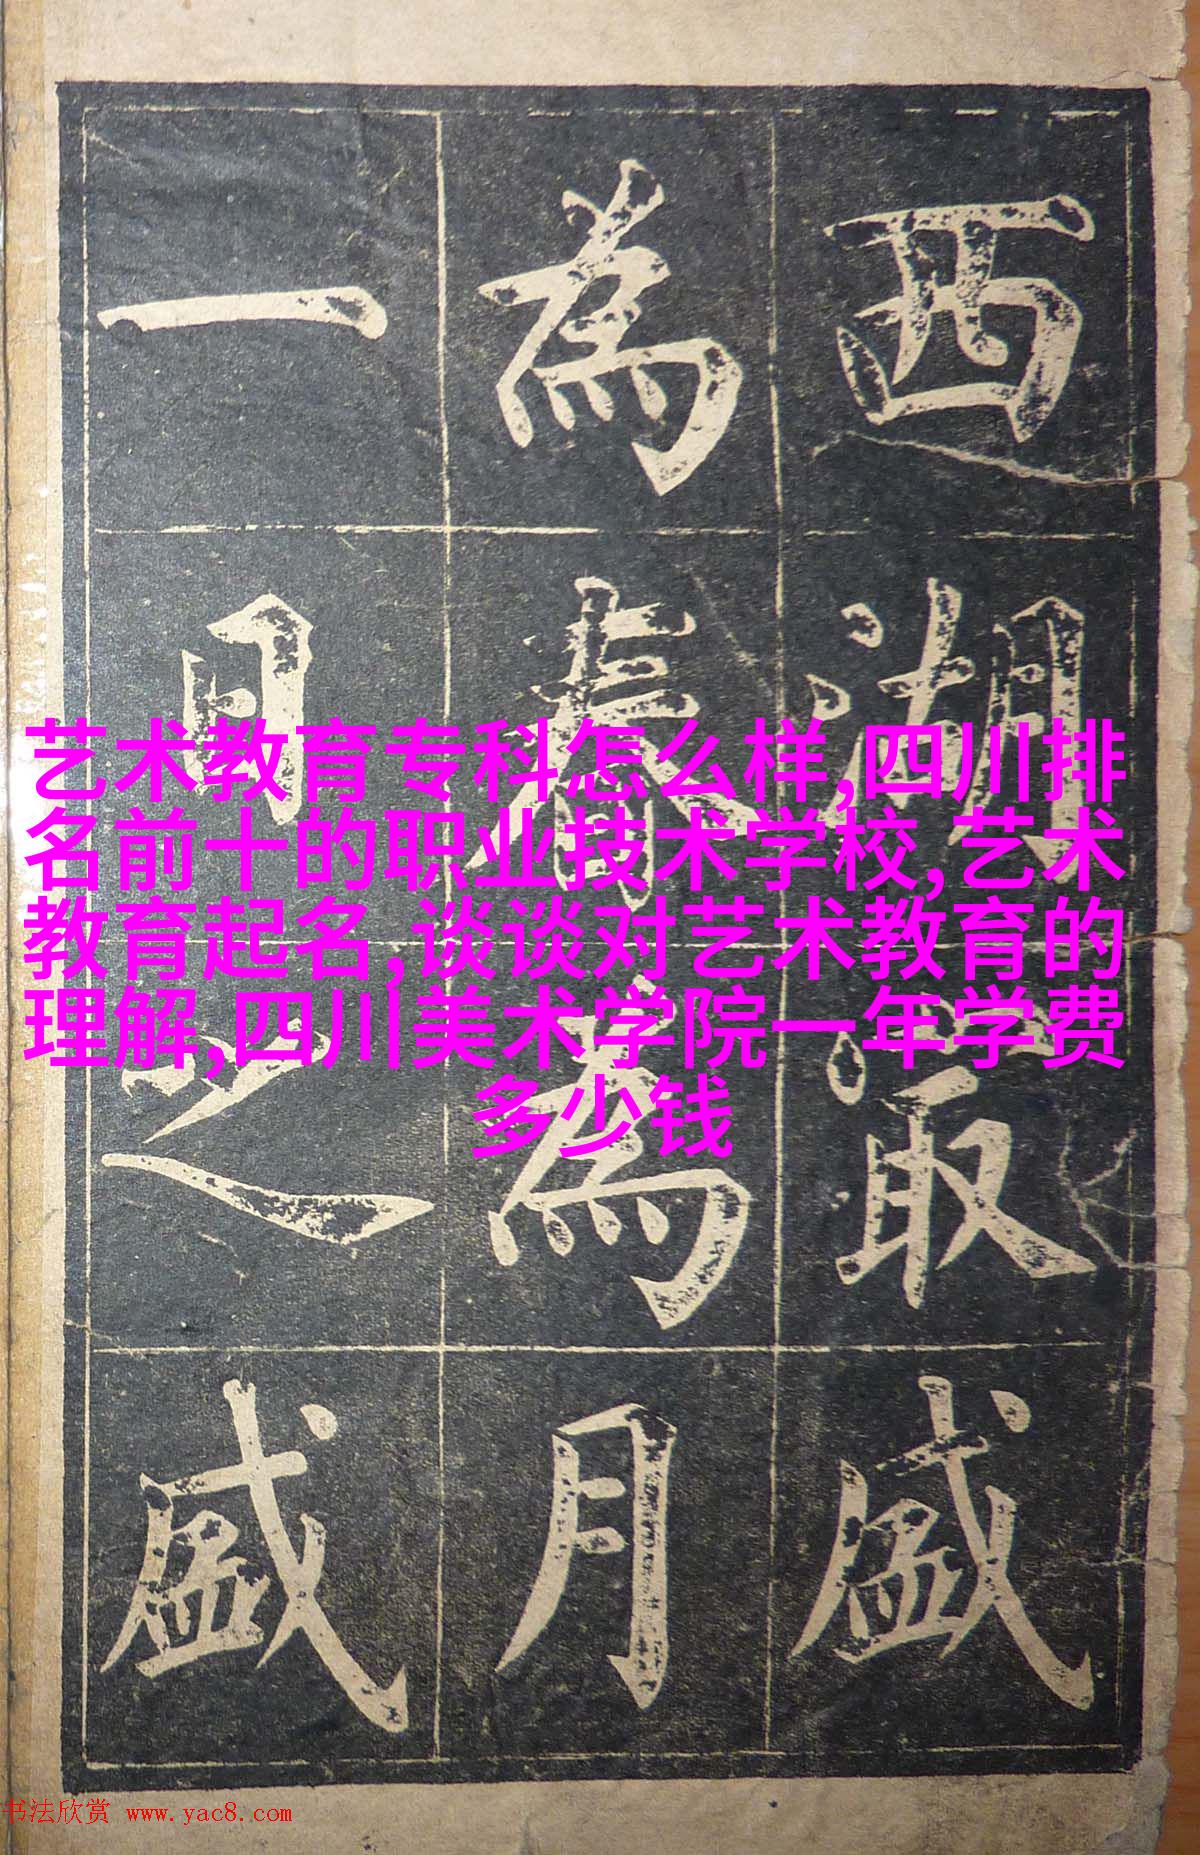 西湖最盛
為春為月
一日之盛
艺术教育专科怎么样,四川排
名前十的职业技术学校,艺术
教育起名,谈谈对艺术教育的
理解,四川美术学院一年学费
多少钱
书法欣赏 www.yac8.com